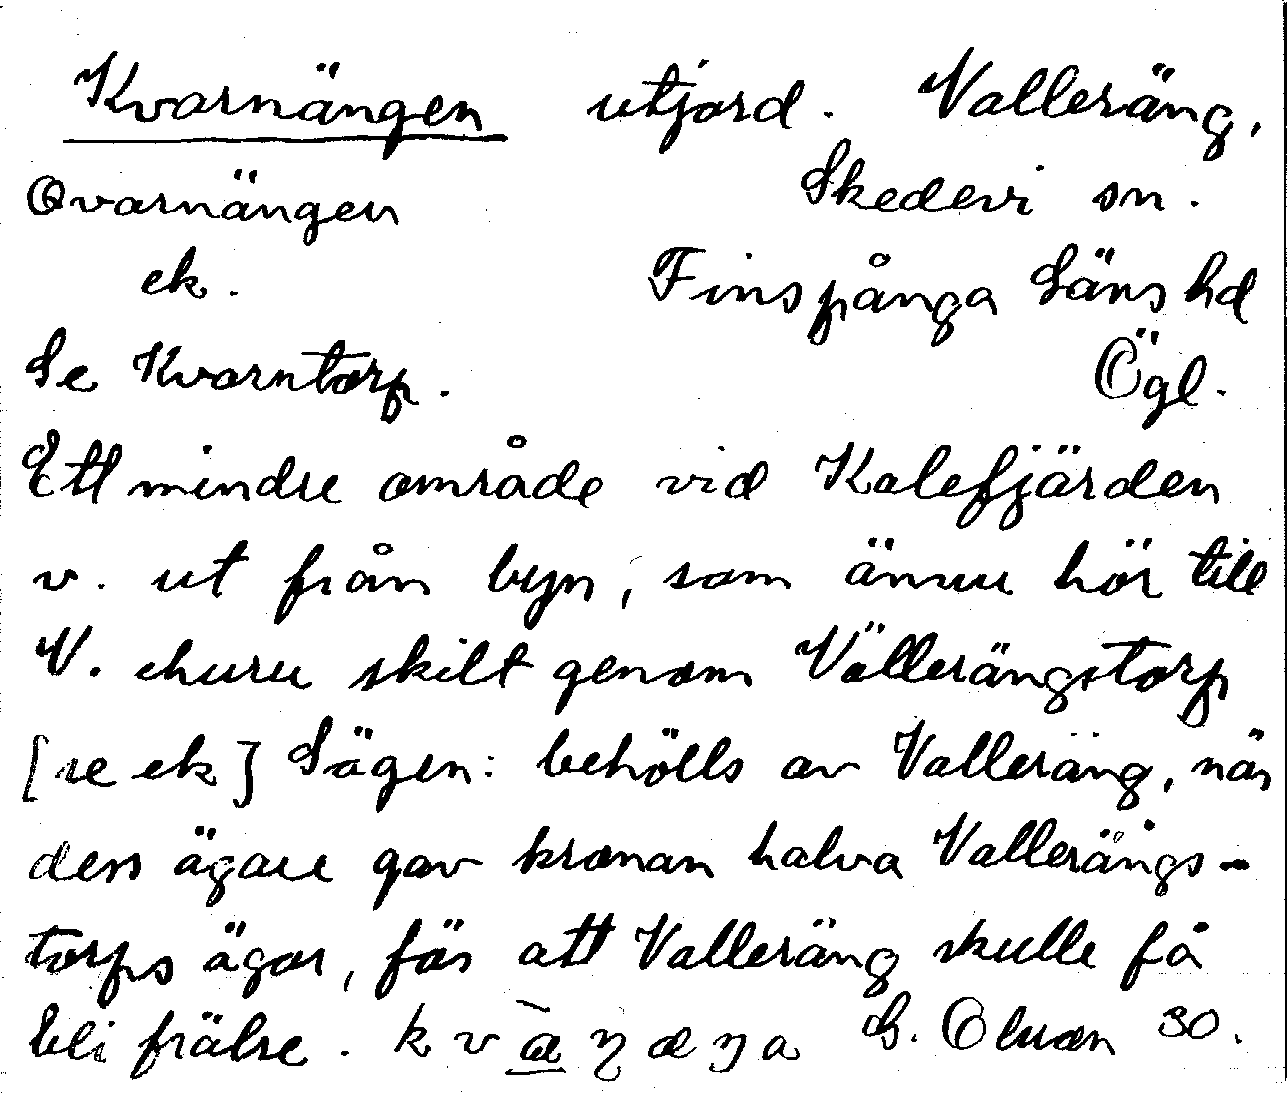 Kvarnängen utjord. Valleräng,
Qvarnängen Skedevi sn.
ek. Finspånga Läns hd
Se Kvarntorp. Ögl.
Ett mindre område vid Kalefjärden
v. ut från byn, som ännu hör till
V. ehuru skilt genom Vallerängstorp
[se ek] Sägen: behölls av Valleräng, när
dess ägare gav kronan halva Vallerängs-
torps ägor, för att Valleräng skulle få
bli frälse. G. Olsson 30.